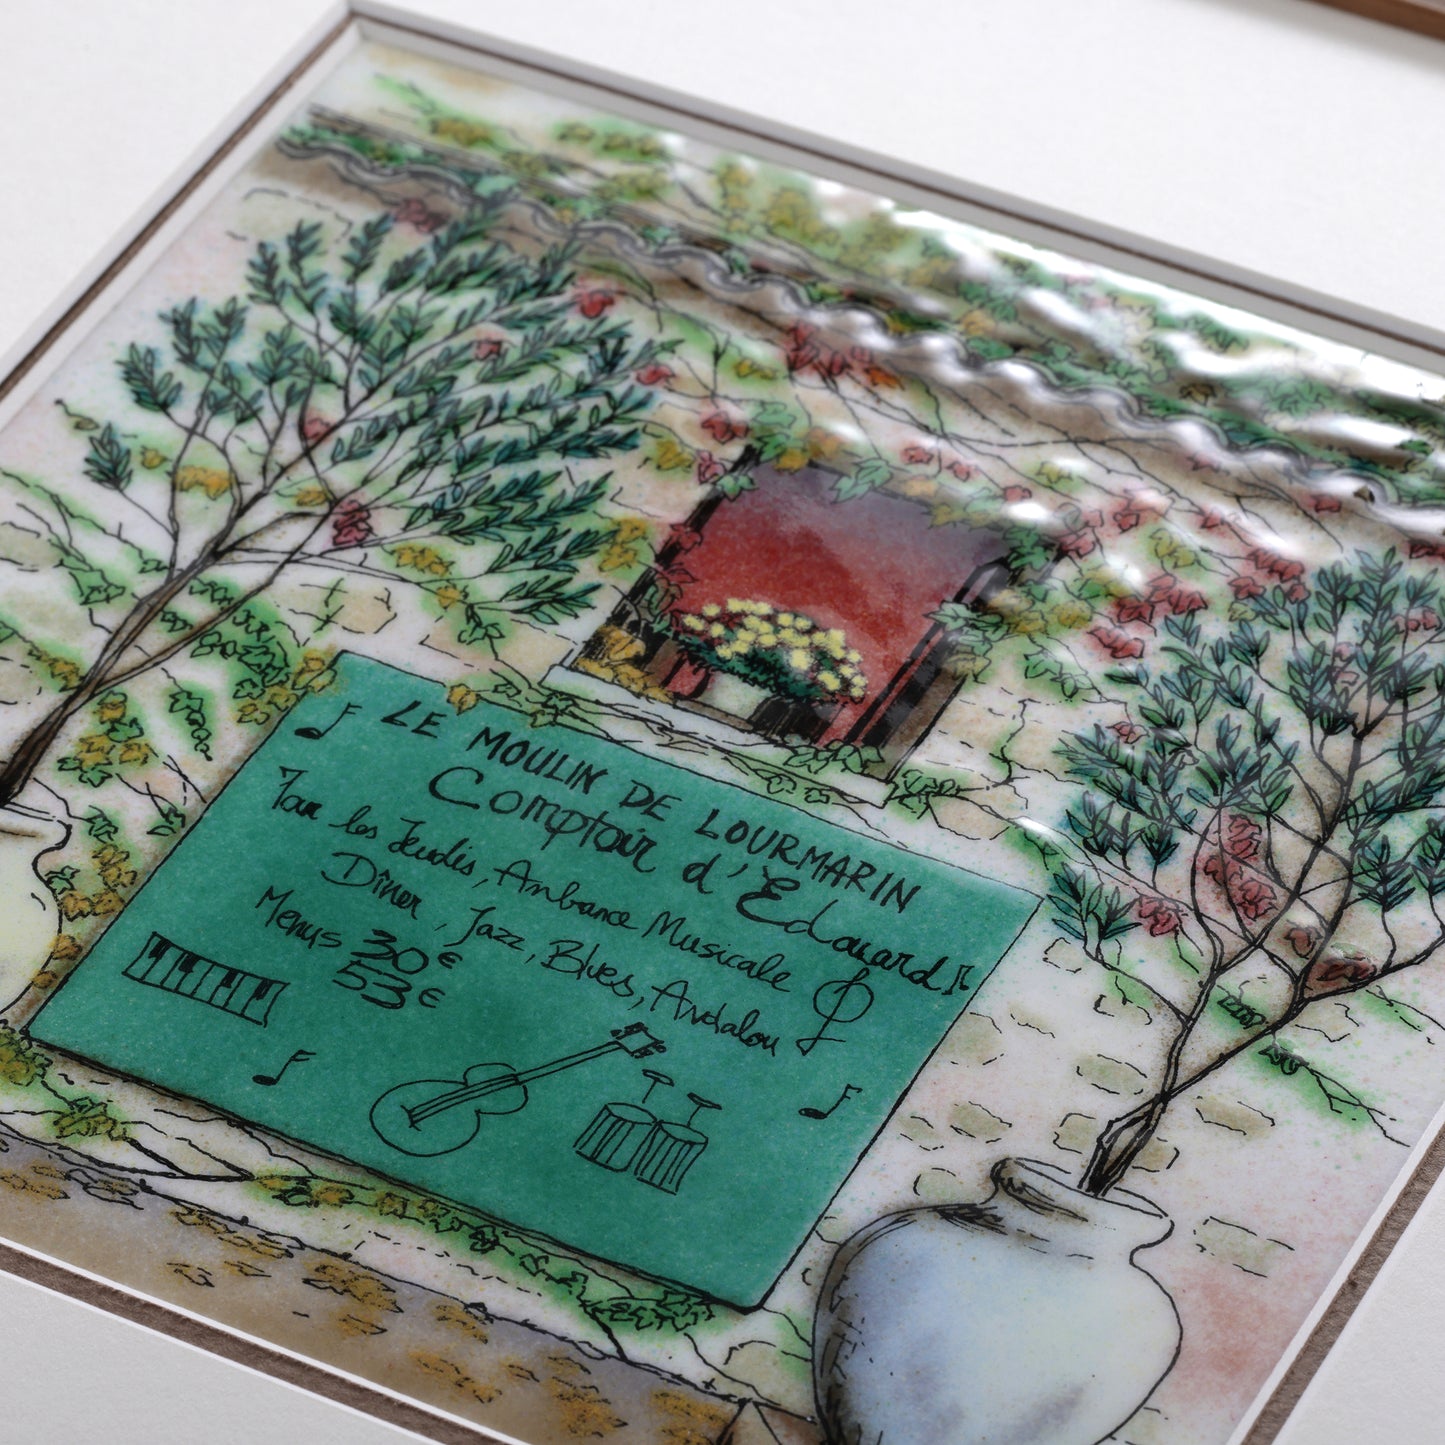 LE MOULIN DE LOURMARIN
Comptoir d'Edouard
Tour les Jeudis, Anbance Musicale
Dîner, Jazz, Blues, Andalou
Menus 30€
53€